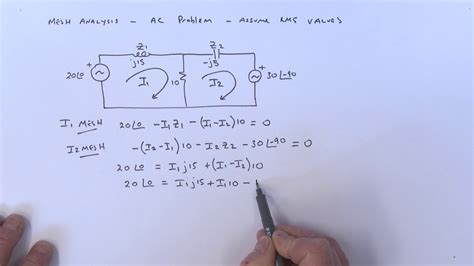 MESH ANALYSIS - AC PROBLEM - ASSUME RMS VALUES
Z1
Z2
j15
-j5
+
+
20∠0
I1
10
I2
30∠-90
I1 MESH 20∠0 - I1Z1 - (I1-I2)10 = 0
I2 MESH -(I2-I1)10 - I2Z2 - 30∠-90 = 0
20∠0 = I1j15 + (I1-I2)10
20∠0 = I1j15 + I110 -